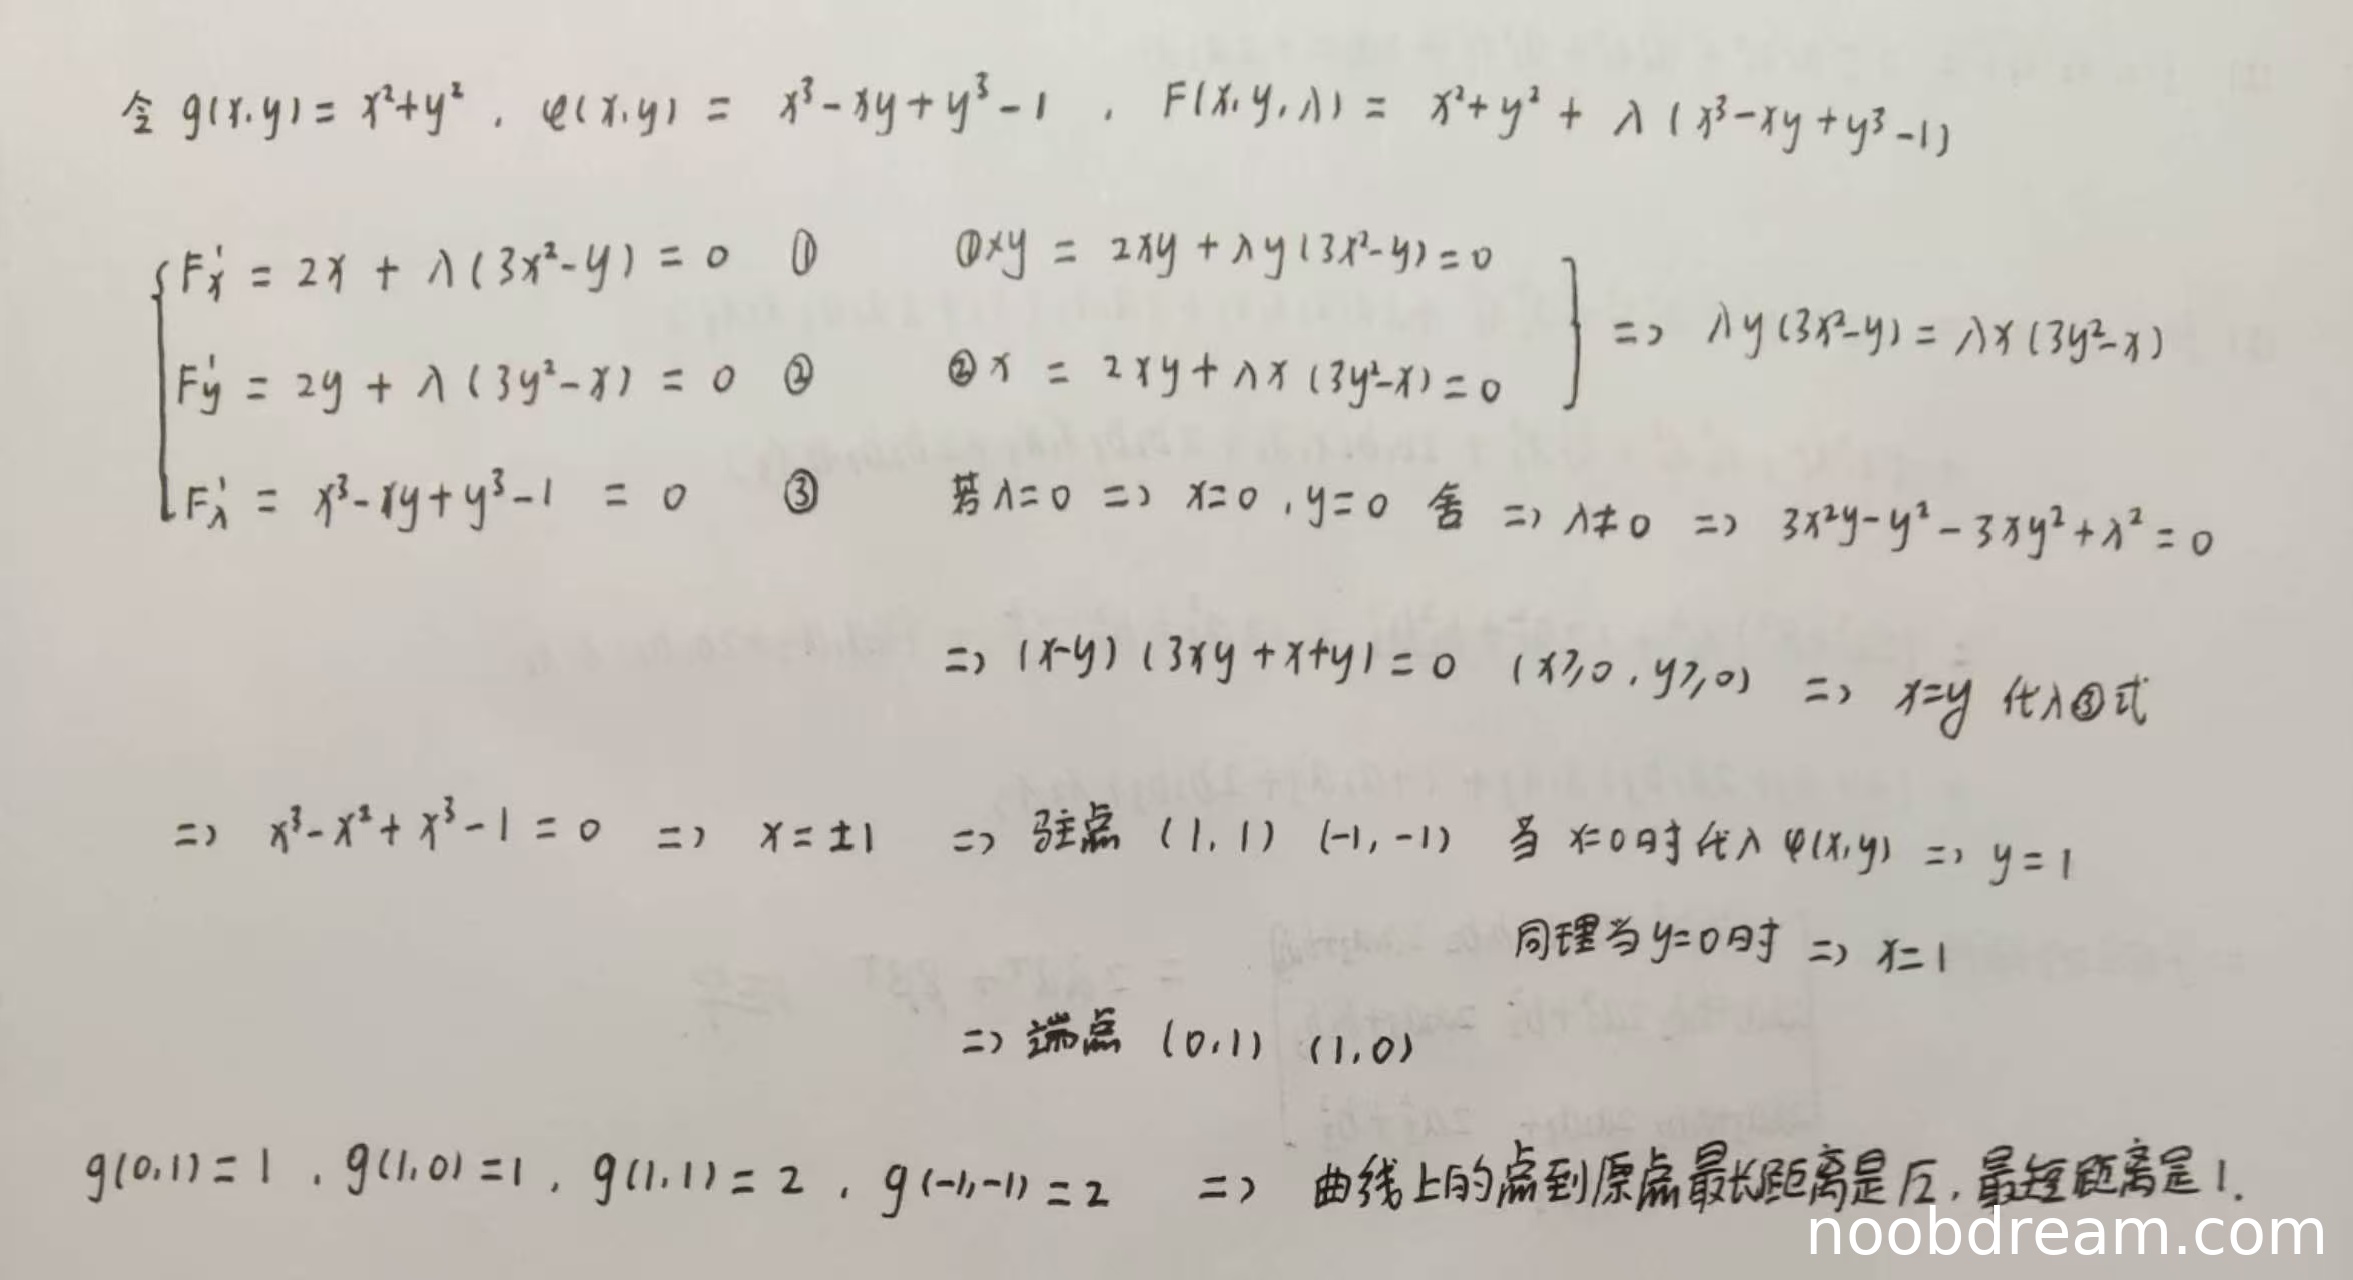 令 g(x,y) = x²+y² , φ(x,y) = x³-xy+y³-1 , F(x,y,λ) = x²+y² + λ(x³-xy+y³-1)
F'x = 2x + λ(3x²-y) = 0 ① ①×y = 2xy + λy(3x²-y) = 0
=> λy(3x²-y) = λx(3y²-x)
F'y = 2y + λ(3y²-x) = 0 ② ②x = 2xy + λx(3y²-x) = 0
F'λ = x³-xy+y³-1 = 0 ③ 若λ=0 => x=0 , y=0 舍 => λ≠0 => 3x²y-y²-3xy²+x²=0
=> (x-y)(3xy+x+y) = 0 (x≥0 , y≥0) => x=y 代入③式
=> x³-x²+x³-1 = 0 => x=±1 => 驻点 (1,1) (-1,-1) 当 x=0时代入 φ(x,y) => y=1
同理当y=0时 => x=1
=> 端点 (0,1) (1,0)
g(0,1)=1 , g(1,0)=1 , g(1,1)=2 , g(-1,-1)=2 => 曲线上的点到原点最长距离是√2, 最短距离是1.
noobdream.com